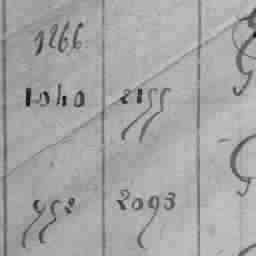 1266
1040 2155
952 2093